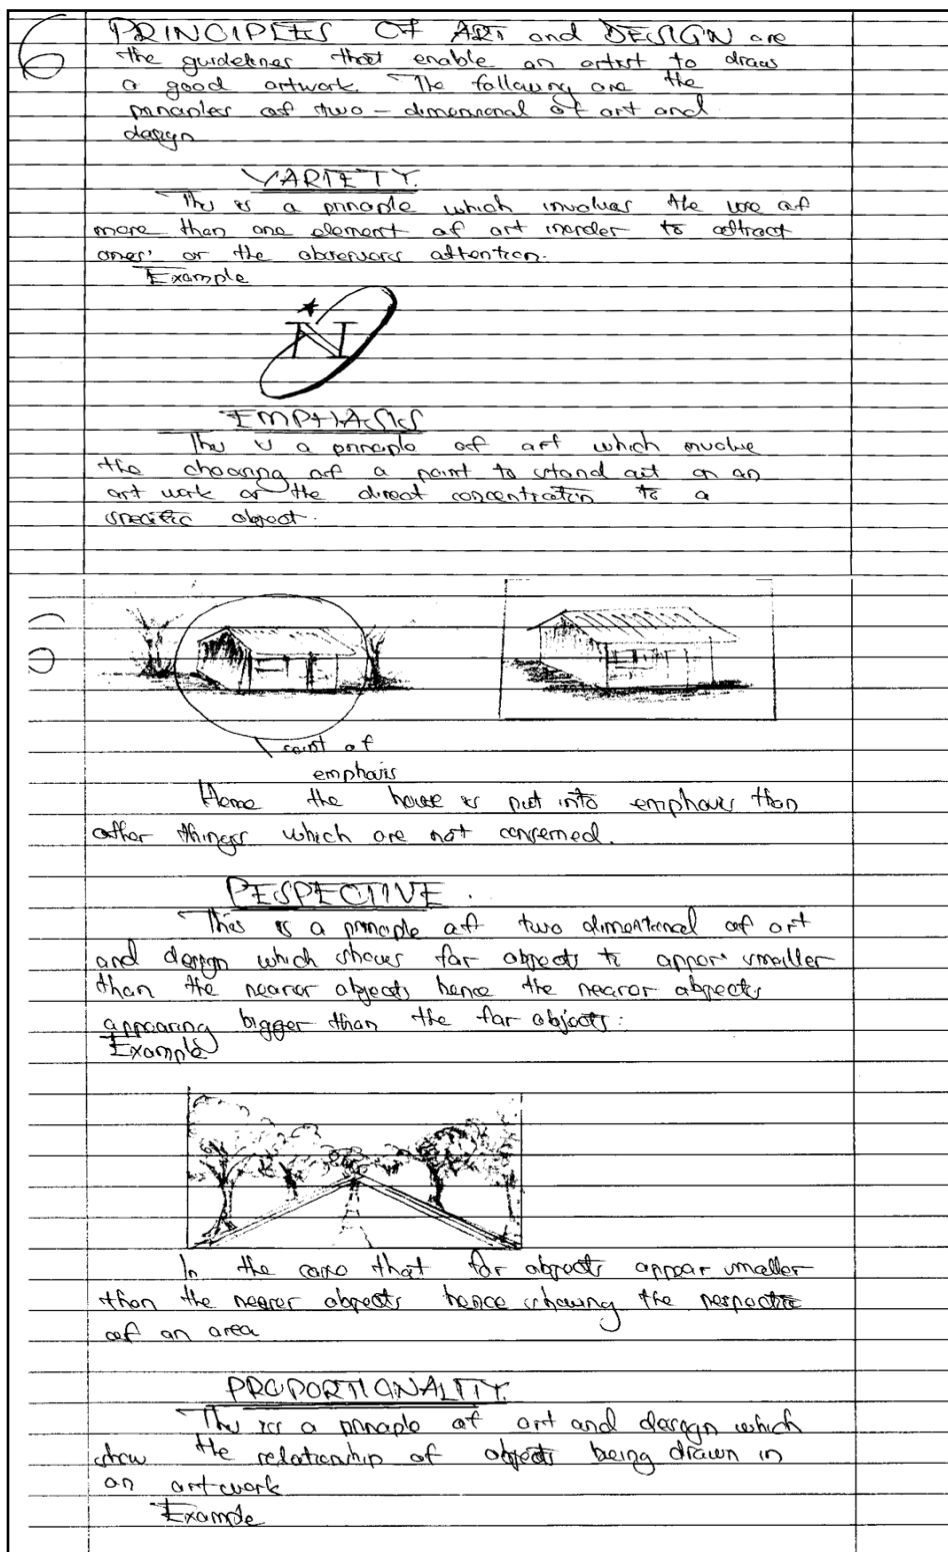 6
PRINCIPLES OF ART and DESIGN are
the guidelines that enable an artist to draw
a good artwork. The following are the
principles of two - dimensional of art and
design
VARIETY.
This is a principle which involves the use of
more than one element of art inorder to attract
ones' or the observers attention.
Example
N
EMPHASIS
This is a principle of art which involve
the choosing of a point to stand out on an
art work or the direct concentration to a
specific object.
point of
emphasis
Hence the house is put into emphasis than
other things which are not concerned.
PESPECTIVE.
This is a principle of two dimentional of art
and design which shows far objects to appear smaller
than the nearer objects hence the nearer objects
appearing bigger than the far objects.
Example
In the case that far objects appear smaller
than the nearer objects hence showing the
of an area
PROPORTIONALITY.
This is a principle of art and design which
show the relationship of objects being drawn in
an artwork
Example